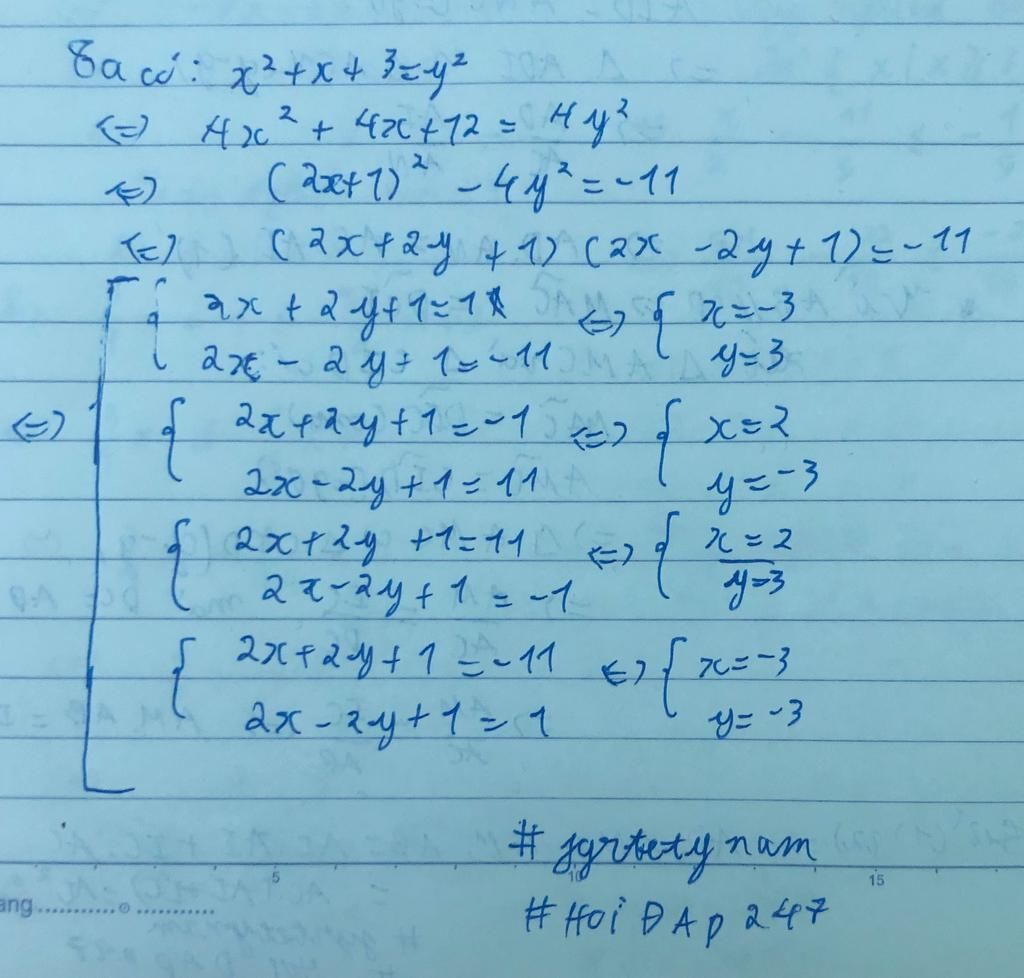 Ta có: x² + x + 3 = y²
<=> 4x² + 4x + 12 = 4y²
<=> (2x+1)² - 4y² = -11
<=> (2x + 2y + 1) (2x - 2y + 1) = -11
{ 2x + 2y + 1 = 1 <=> { x = -3
2x - 2y + 1 = -11 y = 3
<=> { 2x + 2y + 1 = -1 <=> { x = 2
2x - 2y + 1 = 11 y = -3
{ 2x + 2y + 1 = 11 <=> { x = 2
2x - 2y + 1 = -1 y = 3
{ 2x + 2y + 1 = -11 <=> { x = -3
2x - 2y + 1 = 1 y = -3
# jgrtety nam
# HOI ĐAP 247
5 10 15
ang